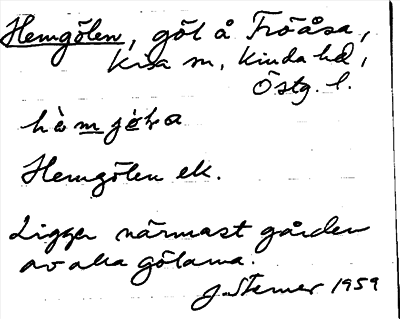 Hemgölen, göl å Fröåsa,
Kisa sn, Kinda hd,
Östg. l.
Hemgölen ek.
Ligger närmast gården
av alla gölarna.
J. Sterner 1959